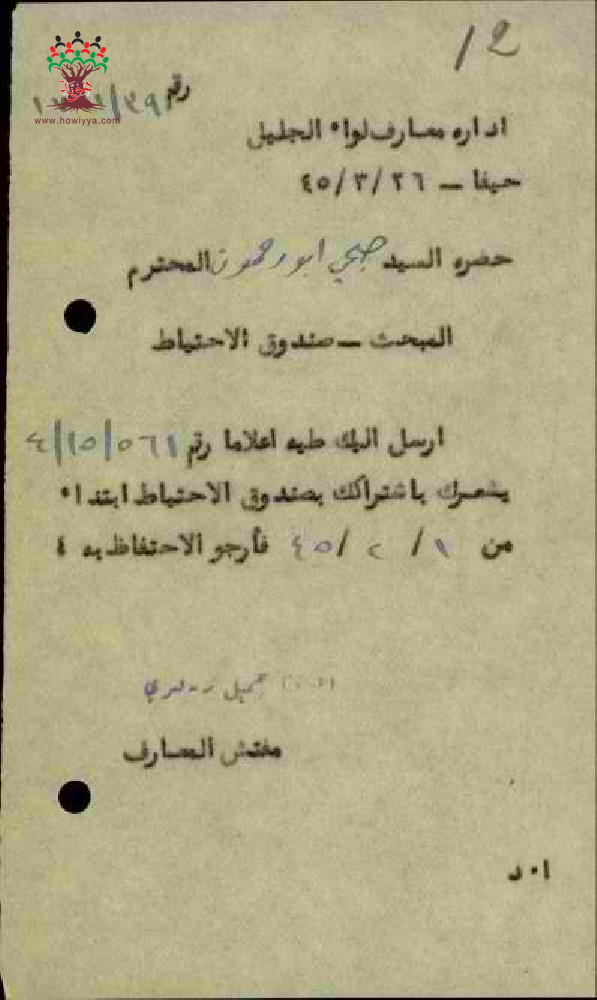 12
رقم
www.howiyya.com
اداره معارف لواء الجليل
حيفا — ٤٥/٣/٢٦
حضره السيد صبحي ابو رحمون المحترم
المبحث — صندوق الاحتياط
ارسل اليك طيه اعلاما رقم ٤/١٥/٥٦١
يشعرك باشتراكك بصندوق الاحتياط ابتداء
من ١/٢/٤٥ فأرجو الاحتفاظ به ٤
جميل
مفتش المعارف
ا٠د